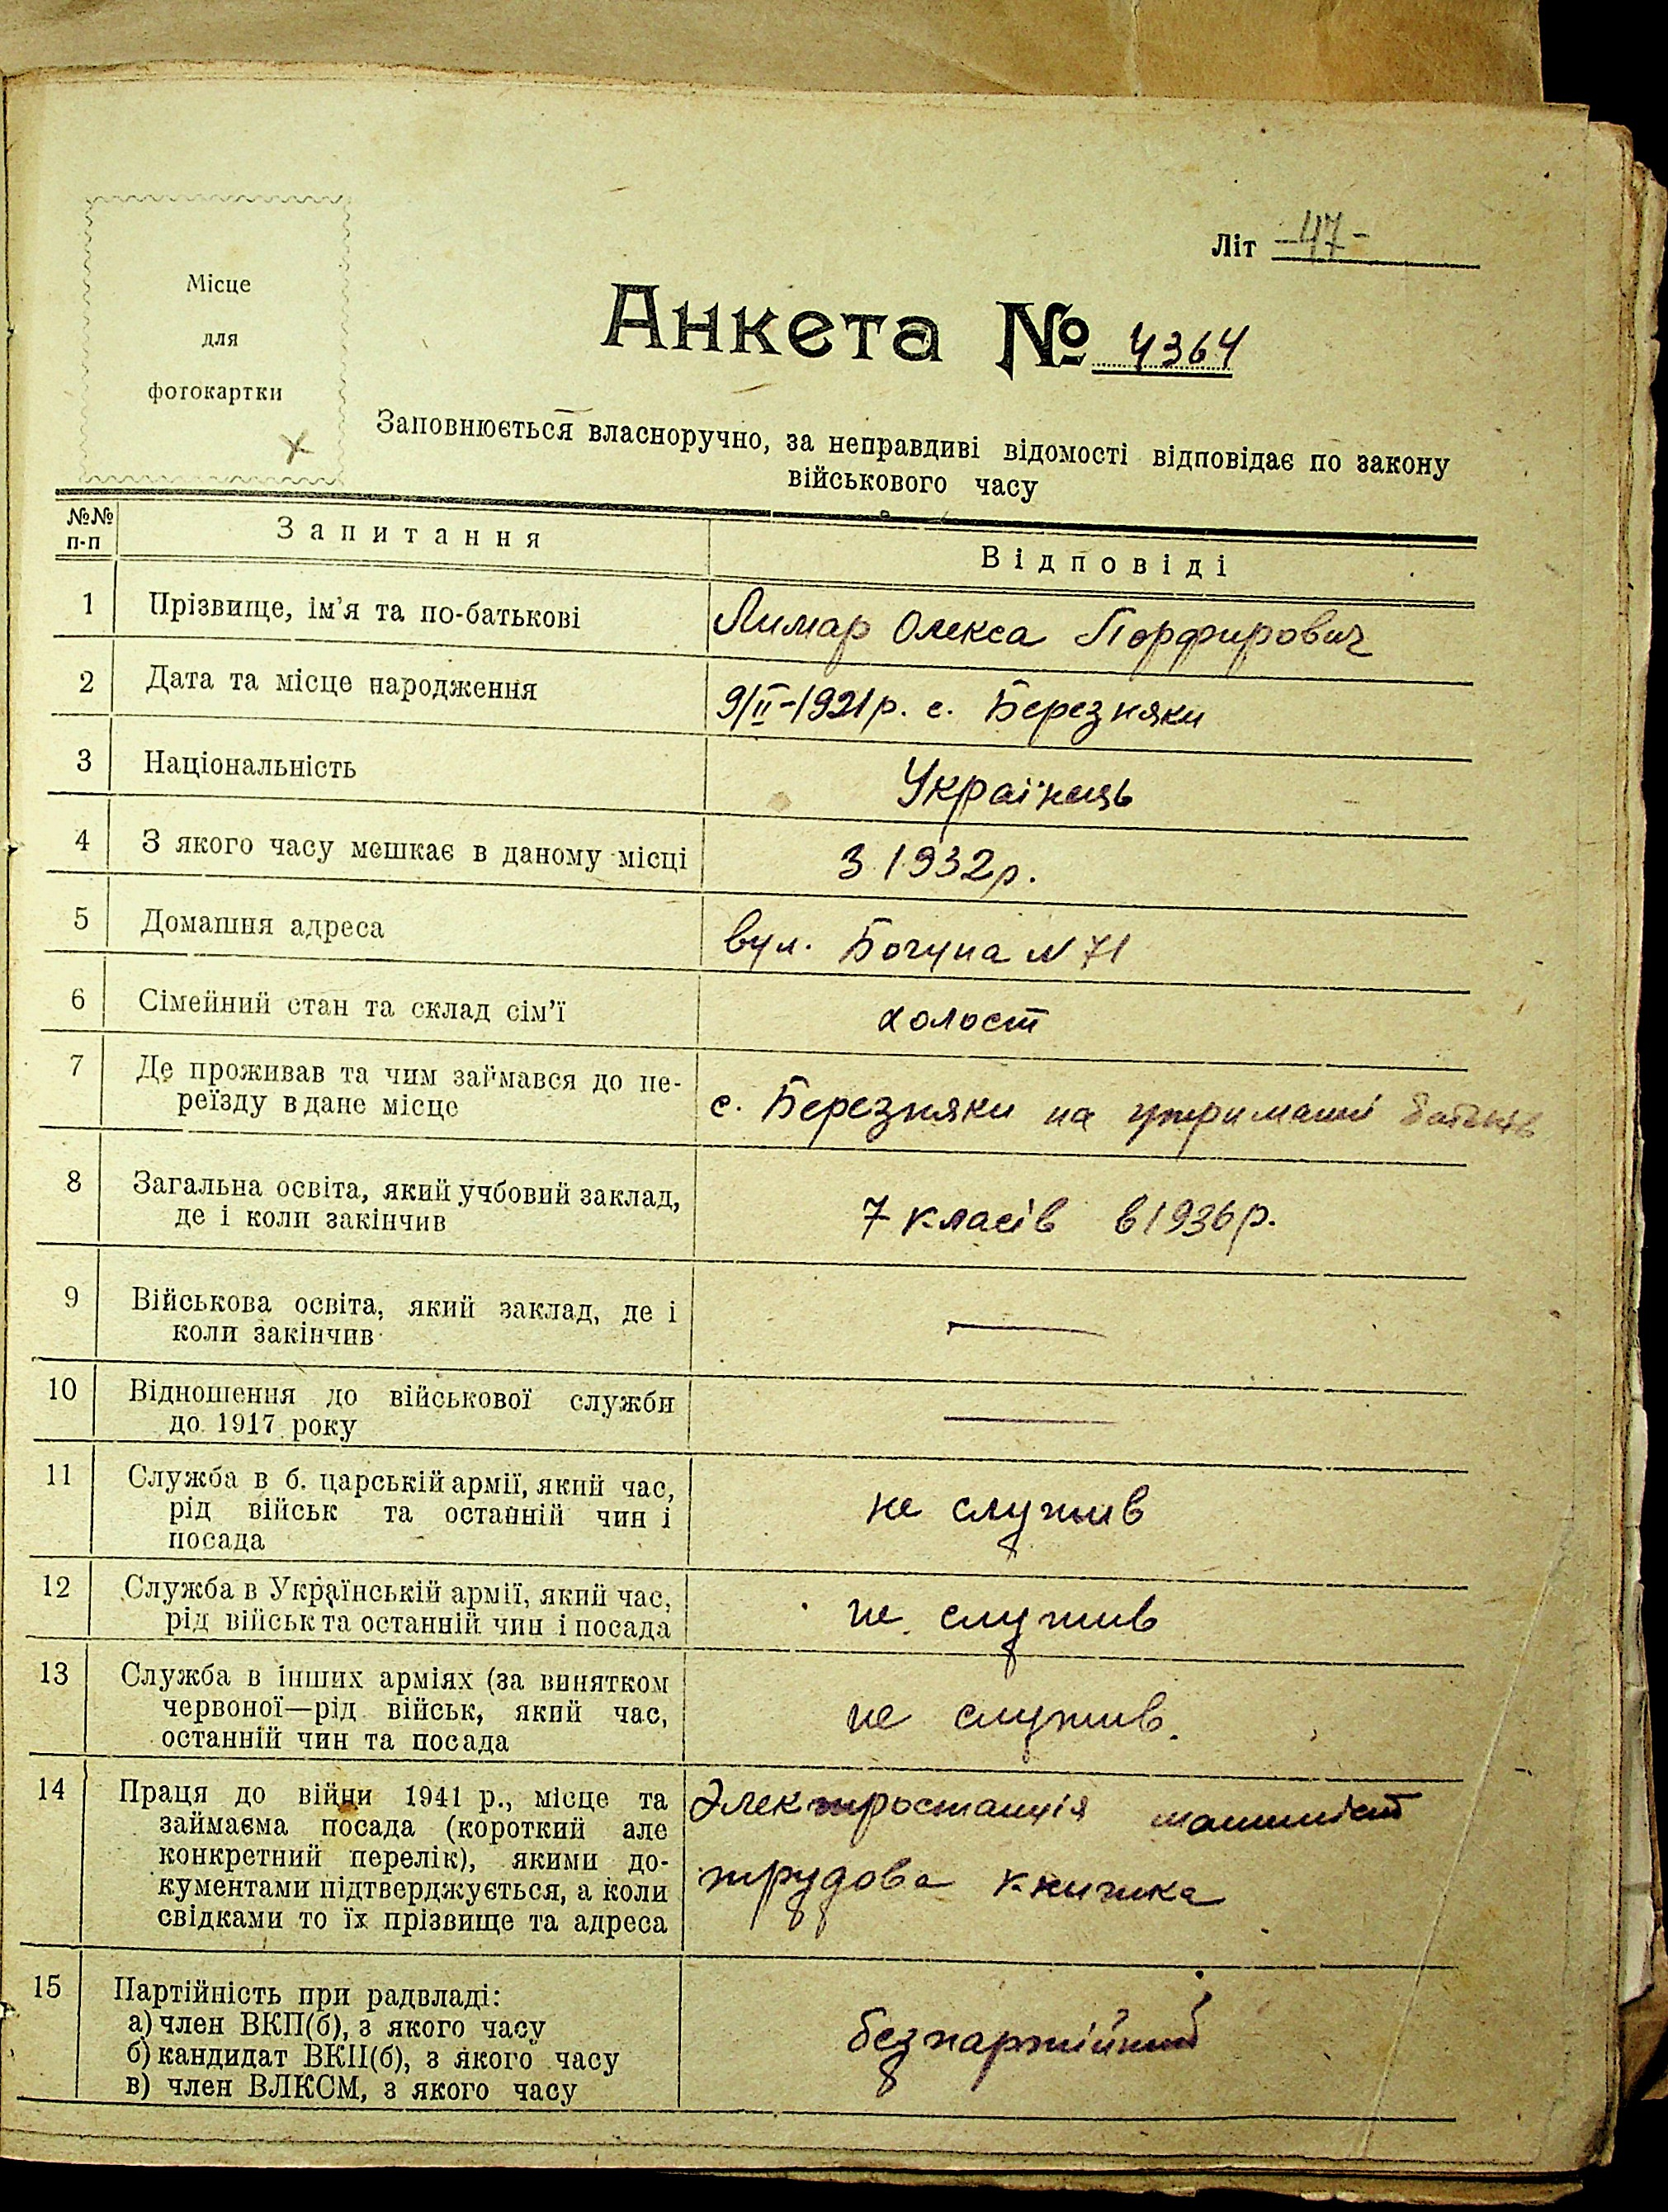 Місце
для
фотокартки
Літ -47-
Анкета № 4364
Заповнюється власноручно, за неправдиві відомості відповідає по закону
військового часу
№№ п-п
Запитання
Відповіді
1
Прізвище, ім'я та по-батькові
Лимар Олекса Порфирович
2
Дата та місце народження
9/II-1921р. с. Березняки
3
Національність
Українець
4
З якого часу мешкає в даному місці
З 1932р.
5
Домашня адреса
вул. Богуна N 71
6
Сімейний стан та склад сім'ї
холост
7
Де проживав та чим займався до пе-
реїзду в дане місце
с. Березняки на утриманні батьків
8
Загальна освіта, який учбовий заклад,
де і коли закінчив
7 класів в 1936р.
9
Військова освіта, який заклад, де і
коли закінчив
10
Відношення до військової служби
до 1917 року
11
Служба в б. царській армії, який час,
рід військ та останній чин і
посада
не служив
12
Служба в Українській армії, який час,
рід військ та останній чин і посада
не служив
13
Служба в інших арміях (за винятком
червоної—рід військ, який час,
останній чин та посада
не служив.
14
Праця до війни 1941 р., місце та
займаєма посада (короткий але
конкретний перелік), якими до-
кументами підтверджується, а коли
свідками то їх прізвище та адреса
Электростанція машиніст
трудова книжка
15
Партійність при радвладі:
а) член ВКП(б), з якого часу
б) кандидат ВКП(б), з якого часу
в) член ВЛКСМ, з якого часу
безпартійний